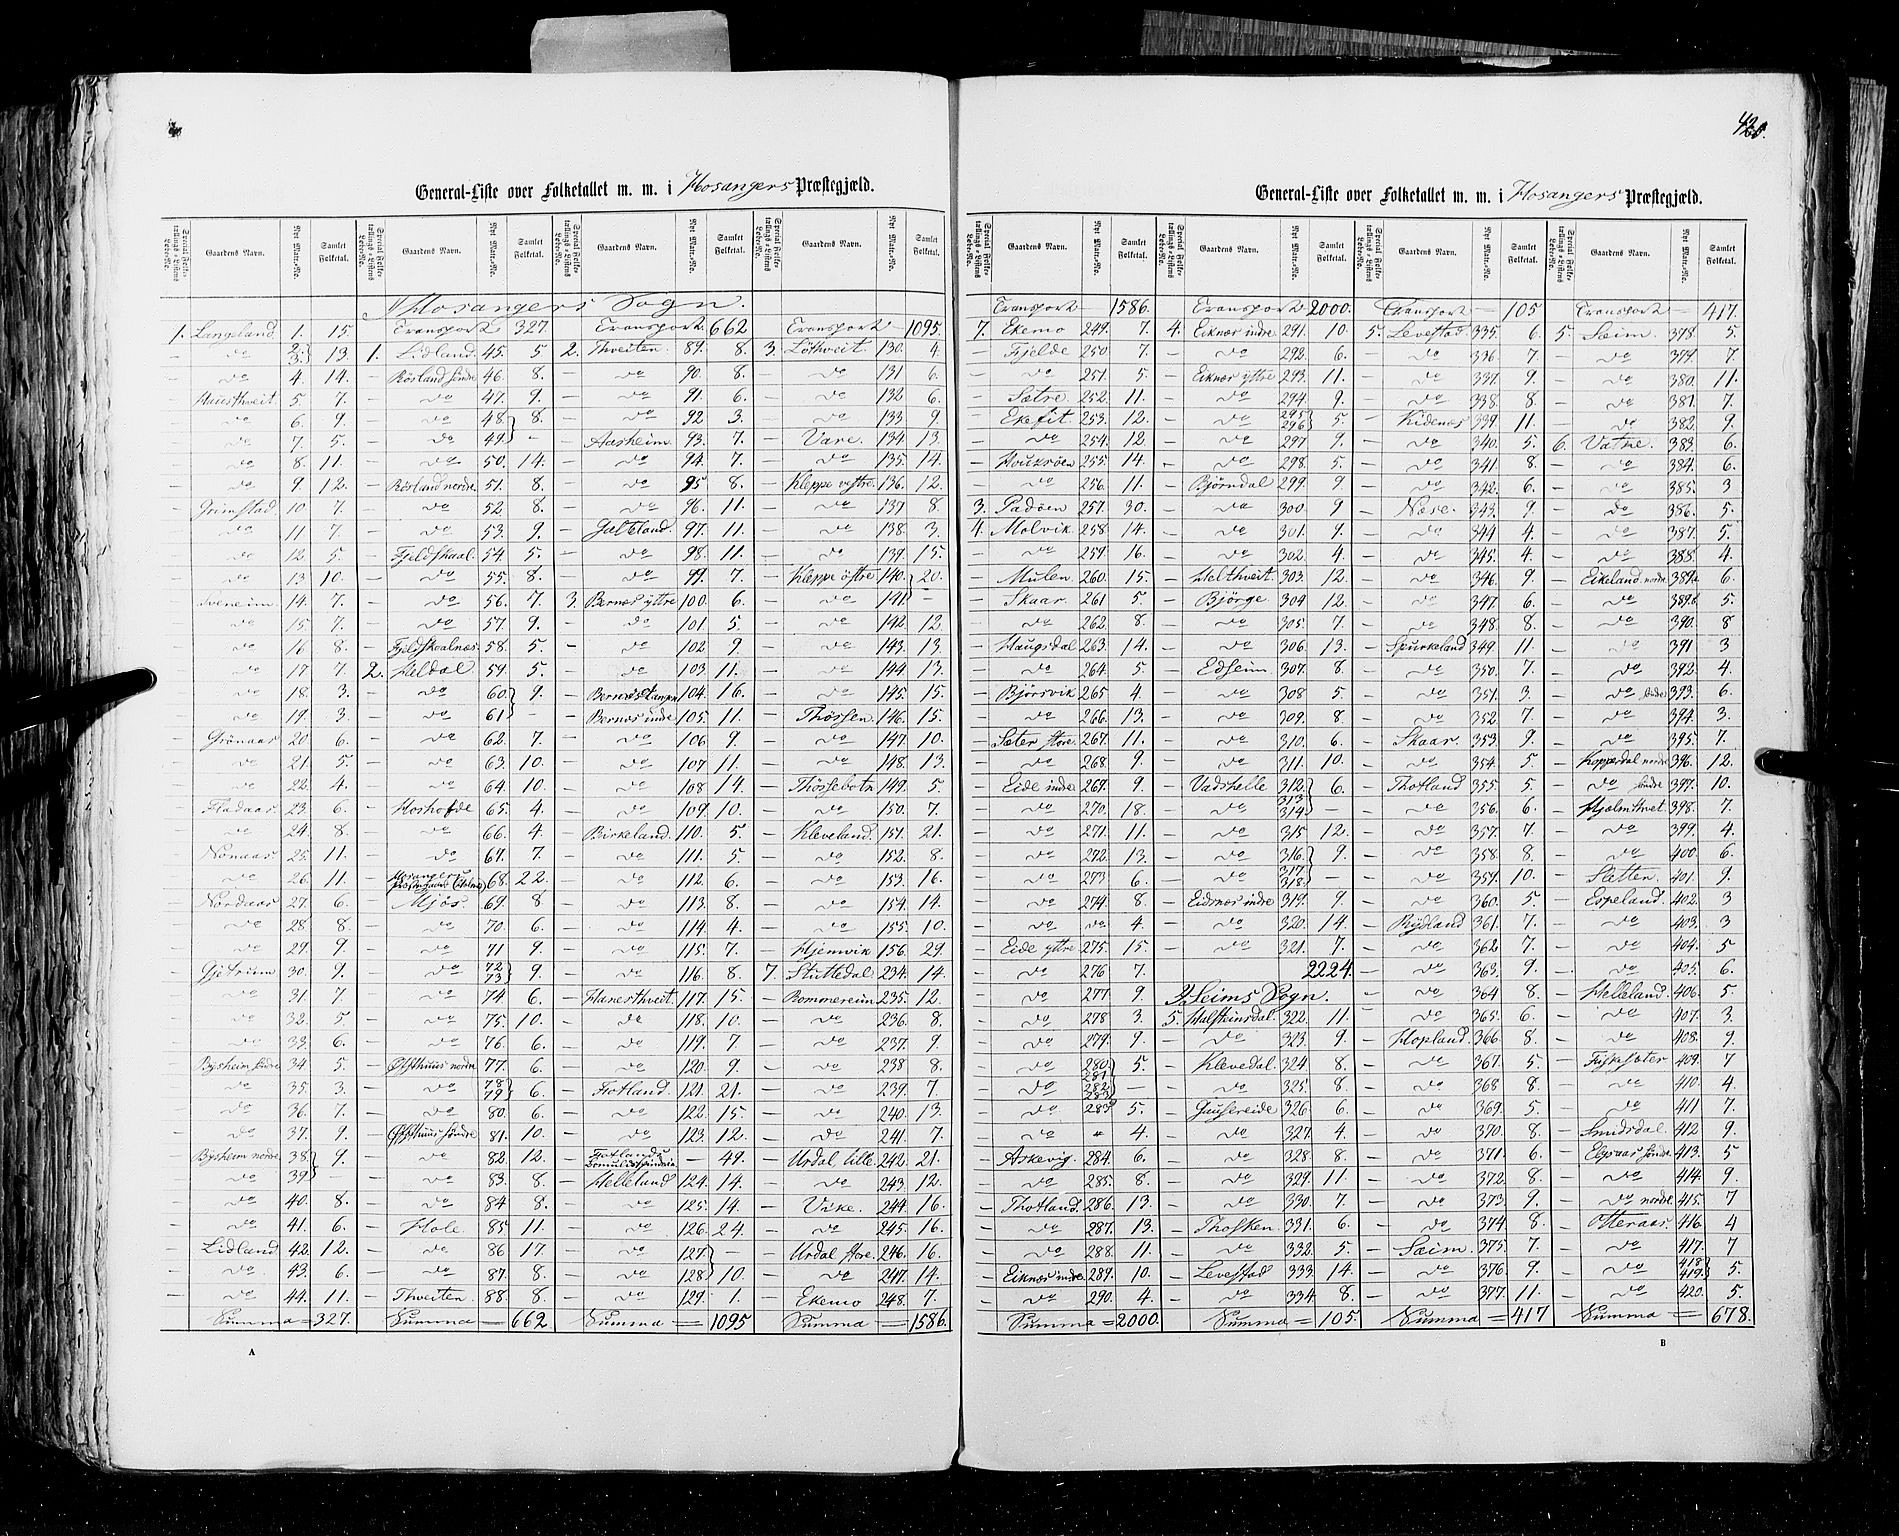 420.
General-Liste over Folketallet m. m. i Hosangers Præstegjæld.
Special Folketællings-Listens Løbe-No. Gaardens Navn. Nyt Matr.-No. Samlet Folketal.
Hosangers Sogn.
1. Langeland 1. 15.
— do 2/3 13.
— do 4. 14.
— Hausthveit. 5 7.
— do 6. 9.
— do 7. 5.
— do 8. 11.
— do 9 12.
— Grimstad 10 7.
— do 11 7.
— do 12 5.
— do 13 10.
— 14. 7.
— do 15 7.
— do 16 8.
— do 17 7.
— do 18. 3.
— do 19. 3.
— Grönaas 20 6.
— do 21. 5.
— do 22. 4.
— Fladaas 23. 6.
— do 24. 8.
— Nonaas 25. 11.
— do 26. 11.
— Nordaas 27. 6.
— do 28. 8.
— do 29. 9.
— 30. 9.
— do 31. 7.
— do 32. 5.
— do 33. 6.
— Bysheim söndre 34 5.
— do 35. 3.
— do 36. 7.
— do 37. 9.
— Bysheim nordre 38. 9.
— do 39
— do 40. 8.
— do 41. 6.
— Lidland 42. 12.
— do 43. 6.
— do 44. 11.
Summa = 327.
Transport 327.
1. Lidland. 45. 5
— Rösland söndre 46. 8.
— do 47. 9.
— do 48. 8.
— do 49. -
— do 50. 14.
— Rösland nordre. 51. 8.
— do 52. 8.
— do 53. 9.
— Fjeldskaal. 54. 5.
— do 55. 8.
— do 56. 7.
— do 57. 9.
— Fjeldskaalnæs. 58. 5.
2. Heldal. 59. 5.
— do 60. 9.
— do 61 -
— do 62. 7.
— do 63. 10.
— do 64. 10.
— Hoshovde 65. 4.
— do 66. 4.
— do 67. 7.
— Hosangers 68. 22.
— Mjös. 69. 8
— do 70. 6.
— do 71 9.
— do 72 73 9.
— do 74 6.
— do 75. 10.
— do 76 6.
— Østhuus nordre 77. 6.
— do 78 79 6.
— do 80. 6.
— Østhuus söndre 81. 10.
— do 82. 12.
— do 83. 8.
— do 84 8.
— Hole. 85. 11.
— do 86 17.
— do 87. 8.
— Thveiten. 88. 8
Summa — 662
Transport 662
2. Thveiten. 89. 8.
— do 90. 8.
— do 91. 6.
— do 92 3.
— Aasheim. 93. 7.
— do 94. 7.
— do 95 8.
— do 96. 11.
— Galteland. 97. 11.
— do 98. 11.
— do 99. 7.
3. Bernæs yttre 100. 6.
— do 101 5.
— do 102 9.
— do 103 11.
— Bernæstangen 104. 16.
— Bernæs indre 105. 11.
— do 106 9.
— do 107 11.
— do 108 14.
— do 109. 10.
— Birkeland. 110. 5
— do 111. 5.
— do 112. 6.
— do 113. 8.
— do 114. 4.
— do 115. 7.
— do 116. 8.
— Hanesthveit. 117. 15.
— do 118. 10.
— do 119. 7
— do 120. 9.
— Fotland. 121. 21.
— do 122. 15.
— do 123. 12.
— Fotlands — 49.
— Helleland 124. 14.
— do 125. 14.
— do 126. 24.
— do 127. -
— do 128 10.
— do 129. 1.
Summa = 1095
Transport 1095.
3. Löthveit. 130. 4.
— do 131 6.
— do 132 6.
— do 133. 9
— Vare. 134. 13.
— do 135. 14.
— Kleppe vestre. 136. 12.
— do 137 8.
— do 138. 3.
— do 139. 15.
— Kleppe östre 140. 20.
— do 141. -
— do 142 12.
— do 143. 13.
— do 144. 13.
— do 145. 15.
— Thössen. 146. 15.
— do 147. 10.
— do 148. 13.
— Thössebotn 149. 5.
— do 150. 7.
— Kleveland. 151. 21.
— do 152. 8.
— do 153. 16.
— do 154. 14.
— do 155. 10.
— Hjemvik 156. 29.
7. Stuttedal 234. 14.
— Rommereim 235. 12.
— do 236. 8.
— do 237. 9.
— do 238 8.
— do 239. 7
— do 240. 13.
— do 241. 7.
— Urdal lille. 242. 21.
— do 243. 12.
— Vike. 244. 16.
— do 245. 16.
— Urdal store. 246. 16.
— do 247. 14.
— Ekemo 248. 7.
Summa = 1586.
A
General-Liste over Folketallet m. m. i Hosangers Præstegjæld.
Special Folketællings-Listens Løbe-No. Gaardens Navn. Nyt Matr.-No. Samlet Folketal.
Transport — 1586.
7. Ekemo 249. 7.
— Fjelde 250 7.
— do 251. 5.
— Sætre. 252. 11.
— Ekefit. 253. 12.
— do 254. 12.
— 255. 14.
— do 256. 11.
3. Padöen 257. 30.
4. Molvik 258. 14.
— do 259. 16.
— Mulen. 260. 15.
— Skaar. 261 5.
— do 262. 8
— Haugsdal 263. 14.
— do 264. 5.
— Björsvik 265 4.
— do 266. 13.
— Sæter store. 267. 11.
— do 268. 9.
— Eide indre 269. 9
— do 270. 18.
— do 271. 11.
— do 272. 13.
— do 273 6.
— do 274. 8.
— do do 4.
— Eide yttre 275. 15.
— do 276 7.
— do 277. 9.
— do 278 3.
— do 279. 9.
— do 280. 281 5.
— do 282. 283 —
— do 283 5.
— do " 4.
— Askevig. 284. 6.
— do 285. 8.
— Thotland. 286. 13.
— do 287. 13.
— do 288. 11.
— Eiknæs indre 289. 10.
— do 290. 4.
Summa = 2000.
Transport 2000.
4. Eiknæs indre 291. 10.
— do 292. 6.
— Eiknæs yttre 293. 11.
— do 294. 9.
— do 295 296 5.
— do 297 9.
— do 298. 5.
— Björndal 299. 9.
— do 300 9
— do 301. 9.
— do 302. 4.
— Helthveit. 303. 12.
— Björge 304 12.
— do 305. 7.
— do 306. 13.
— Edseim. 307. 8
— do 308 5.
— do 309. 8
— do 310. 6.
— do 311. 10.
— Vadshelle 312. 6.
— do 313 314 —
— do 315 12.
— do 316. 9.
— do 317. 318. —
— Eidsnes indre 319. 9.
— do 320. 14.
— do 321. 7.
2224.
2, Seims Sogn.
5. 322. 11.
— do 323. 9.
— Klevedal. 324 8.
— do 325. 8.
— 326. 6.
— do 327. 4.
— do 328. 8
— do 329. 11.
— do 330. 7.
— Thosken. 331. 6.
— do 332. 5.
— Levestad 333. 14.
— do 334 8.
Summa = 105.
Transport — 105
5. Levestad. 335. 6.
— do 336. 7.
— do 337. 9.
— do 338. 8
— Kidenæs 339. 11
— do 340. 5
— do 341. 8
— do 342. 6.
— Nöse. 343. 9.
— do 344 4.
— do 345. 4.
— do 346. 9.
— do 347. 6.
— do 348. 8.
— Spurkeland 349. 11.
— do 350. 7.
— do 351. 3.
— do 352. 7.
— Skaar. 353. 9.
— do 354. 5
— Thotland 355. 5.
— do 356. 6.
— do 357. 7.
— do 358. 8.
— do 359. 10.
— do 360. 5
— Rydland 361. 7.
— do 362. 7.
— do 363. 9
— do 364 8.
— do 365. 6.
— Hopland. 366 8.
— do 367. 5
— do 368 8.
— do 369. 5.
— do 370. 8.
— do 371. 6.
— do 372. 8.
— do 373. 9.
— do 374 8.
— Sæim. 375. 7.
— do 376. 9.
— do 377. 11.
Summa = 417
Transport — 417.
5. Sæim. 378. 5.
— do 379. 7.
— do 380. 11.
— do 381. 7.
— do 382. 9
6. Vatne. 383. 6.
— do 384. 6.
— do 385. 3
— do 386. 5.
— do 387. 5.
— do 388 4.
— Eikeland nordre 389a 6.
— do 389b 5.
— do 390. 8
— do 391 3
— do 392. 4.
— do söndre 393. 6.
— do 394. 3.
— do 395. 7.
— Kopperdal nordre 396. 12.
— do söndre 397. 10.
— Hjelmthvet 398. 7.
— do 399. 4.
— do 400. 6
— Sletten. 401. 9.
— Espeland. 402. 3
— do 403. 3
— do 404. 5
— do 405. 6.
— Helleland. 406. 5
— do 407. 3.
— do 408. 9
— Fiskesæter 409. 7
— do 410. 4
— do 411 7.
— Smidsdal. 412 9.
— söndre 413. 5
— do 414. 9.
— do nordre 415. 7
— Otteraas. 416. 4
— do 417. 7
— do 418 419. 5.
— do 420. 5.
Summa = 678.
B